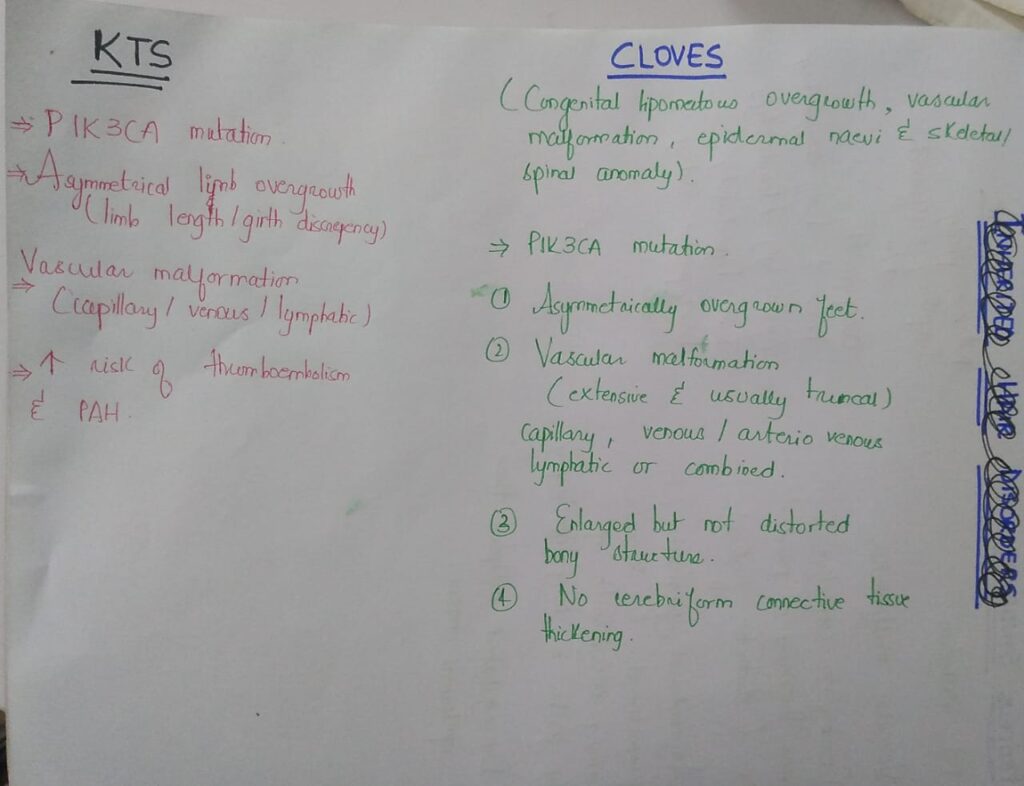 KTS
⇒ PIK3CA mutation.
⇒ Asymmetrical limb overgrowth
(limb length / girth discrepency)
Vascular malformation
⇒ (capillary / venous / lymphatic)
⇒ ↑ risk of thromboembolism
& PAH.
CLOVES
(Congenital lipomatous overgrowth, vascular
malformation, epidermal naevi & skeletal/
spinal anomaly).
⇒ PIK3CA mutation.
① Asymmetrically overgrown feet.
② Vascular malformation
(extensive & usually truncal)
capillary, venous / arterio venous
lymphatic or combined.
③ Enlarged but not distorted
bony structure.
④ No cerebriform connective tissue
thickening.
DISORDERS